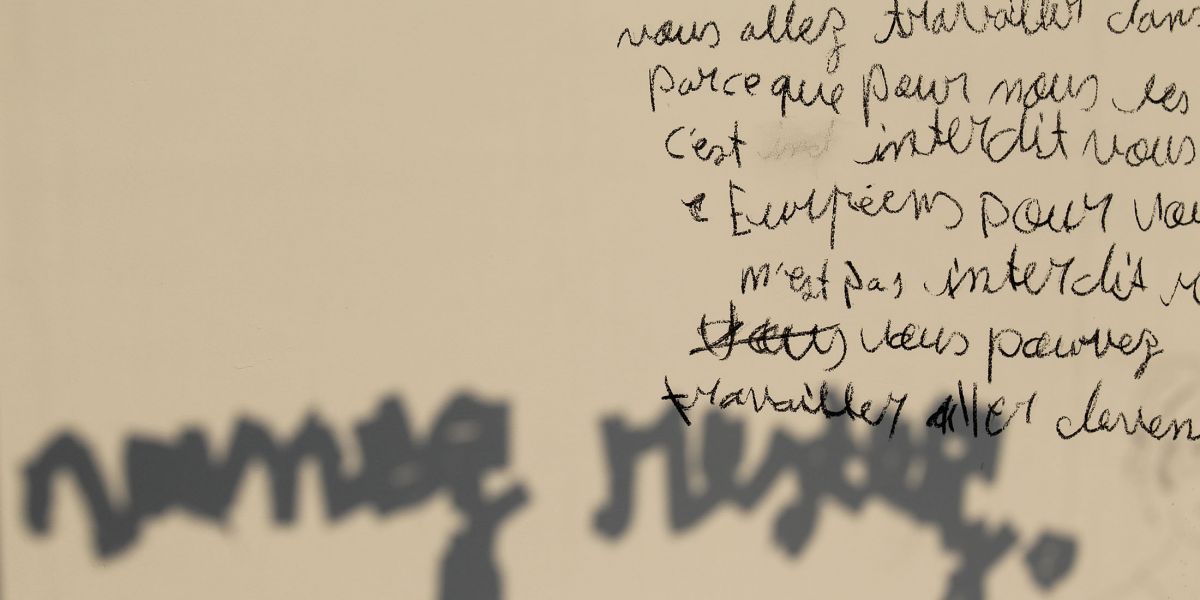 vous allez travailler dans
parce que pour nous les
c'est interdit vous
Européens pour vou
n'est pas interdit
vous pouvez
travailler aller devan